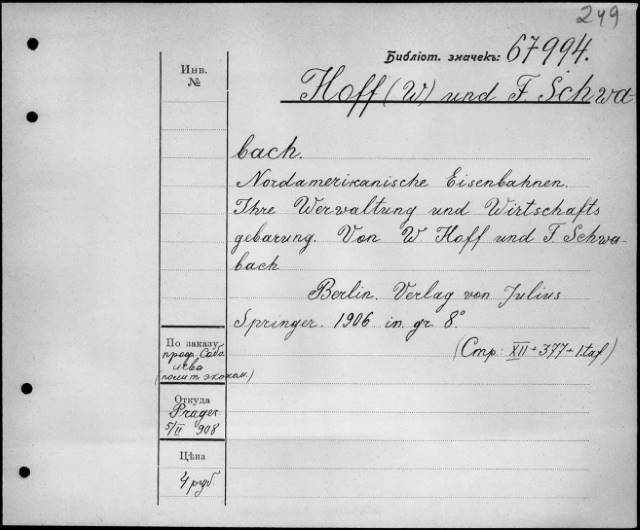 249
Библіот. значекъ: 67994.
Инв.
№
Hoff (W) und F. Schwa-
bach.
Nordamerikanische Eisenbahnen.
Ihre Werwaltung und Wirtschafts
gebarung. Von W Hoff und F Schwa-
bach
Berlin. Verlag von Julius
Springer. 1906 in gr 8°.
(Стр: XII + 377 + 1 taf)
По заказу
проф. Саба
(полит эконом.)
Откуда
Prager
5/II 908
Цѣна
4 руб.